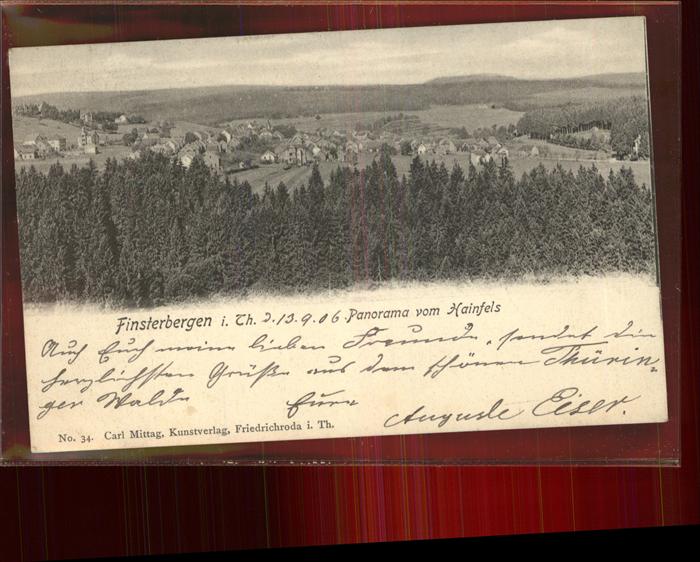 Finsterbergen i. Th. d. 13.9.06 Panorama vom Hainfels
Auch Euch meine lieben Freunde, sendet die
herzlichsten Grüße aus dem schönen Thürin-
ger Walde Eure Auguste Eiser.
No. 34. Carl Mittag, Kunstverlag, Friedrichroda i. Th.